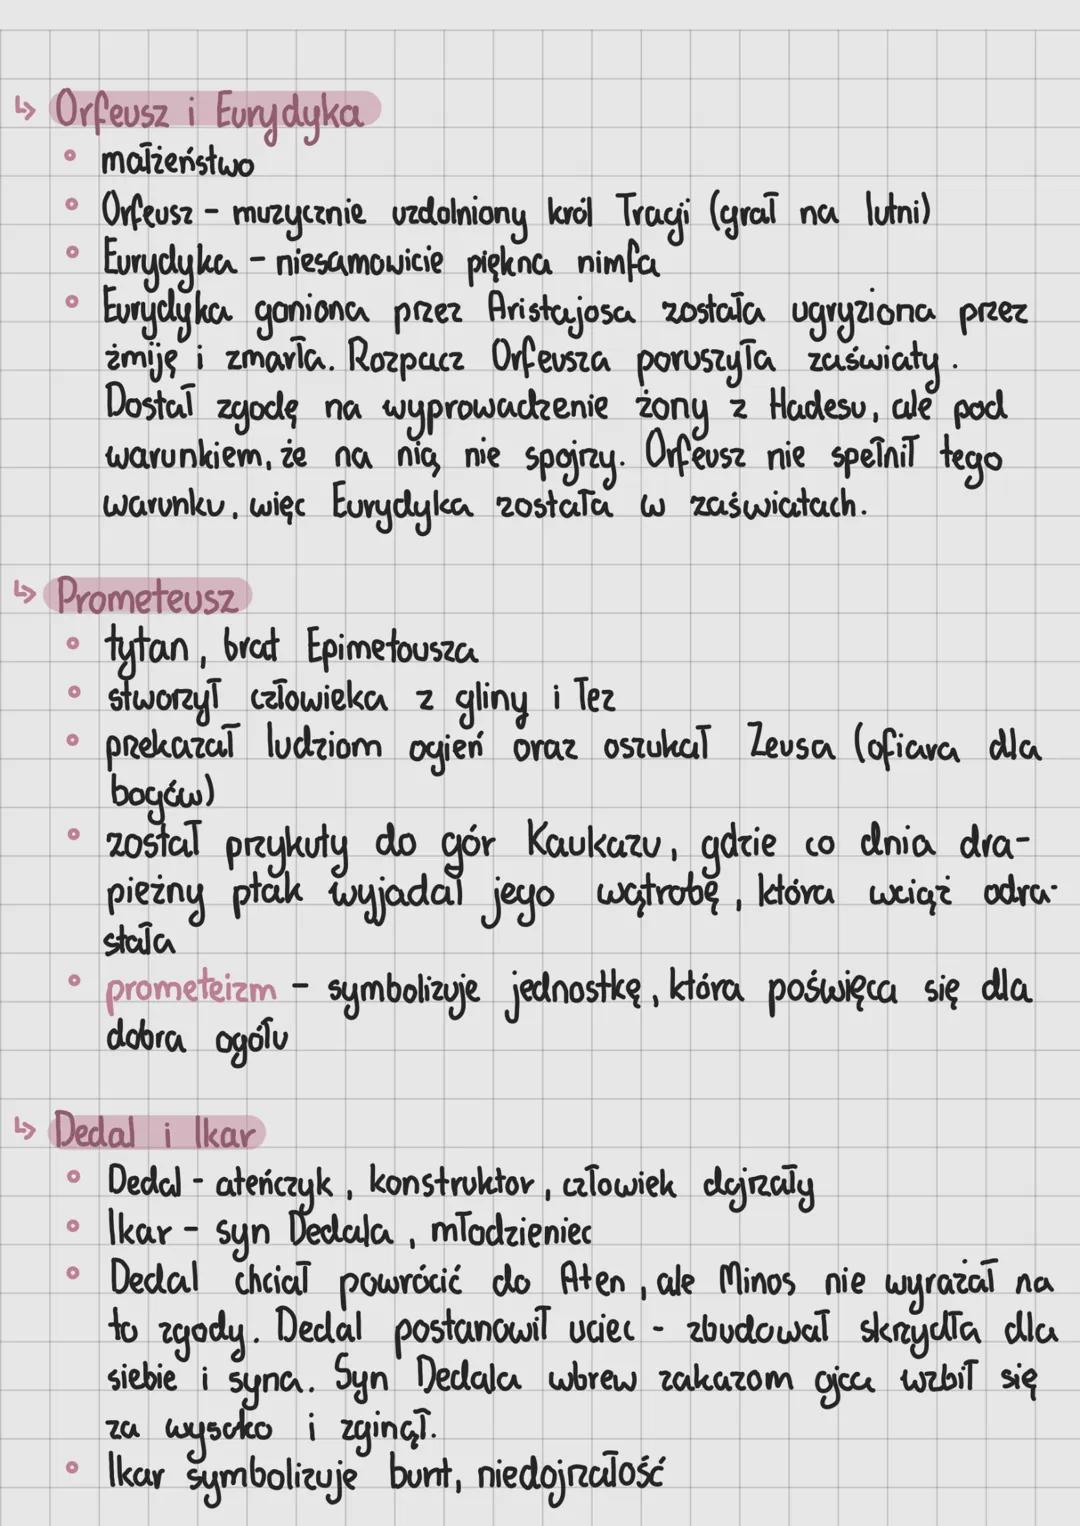 ↳ Orfeusz i Eurydyka
• małżeństwo
• Orfeusz - muzycznie uzdolniony król Tragi (grał na lutni)
• Eurydyka - niesamowicie piękna nimfa
• Eurydyka goniona przez Aristajosa została ugryziona przez
żmiję i zmarła. Rozpacz Orfeusza poruszyła zaświaty.
Dostał zgodę na wyprowadzenie żony z Hadesu, ale pod
warunkiem, że na nią nie spojrzy. Orfeusz nie spełnił tego
warunku, więc Eurydyka została w zaświatach.
↳ Prometeusz
• tytan, brat Epimetousza
• stworzył człowieka z gliny i łez
• przekazał ludziom ogień oraz oszukał Zeusa (ofiara dla
bogów)
• został przykuty do gór Kaukazu, gdzie co dnia dra-
pieżny ptak wyjadał jego wątrobę, która wciąż odra-
stała
• prometeizm - symbolizuje jednostkę, która poświęca się dla
dobra ogółu
↳ Dedal i Ikar
• Dedal - ateńczyk, konstruktor, człowiek dojrzały
• Ikar - syn Dedala, młodzieniec
• Dedal chciał powrócić do Aten, ale Minos nie wyrażał na
to zgody. Dedal postanowił uciec - zbudował skrzydła dla
siebie i syna. Syn Dedala wbrew zakazom ojca wzbił się
za wysoko i zginął.
• Ikar symbolizuje bunt, niedojrzałość